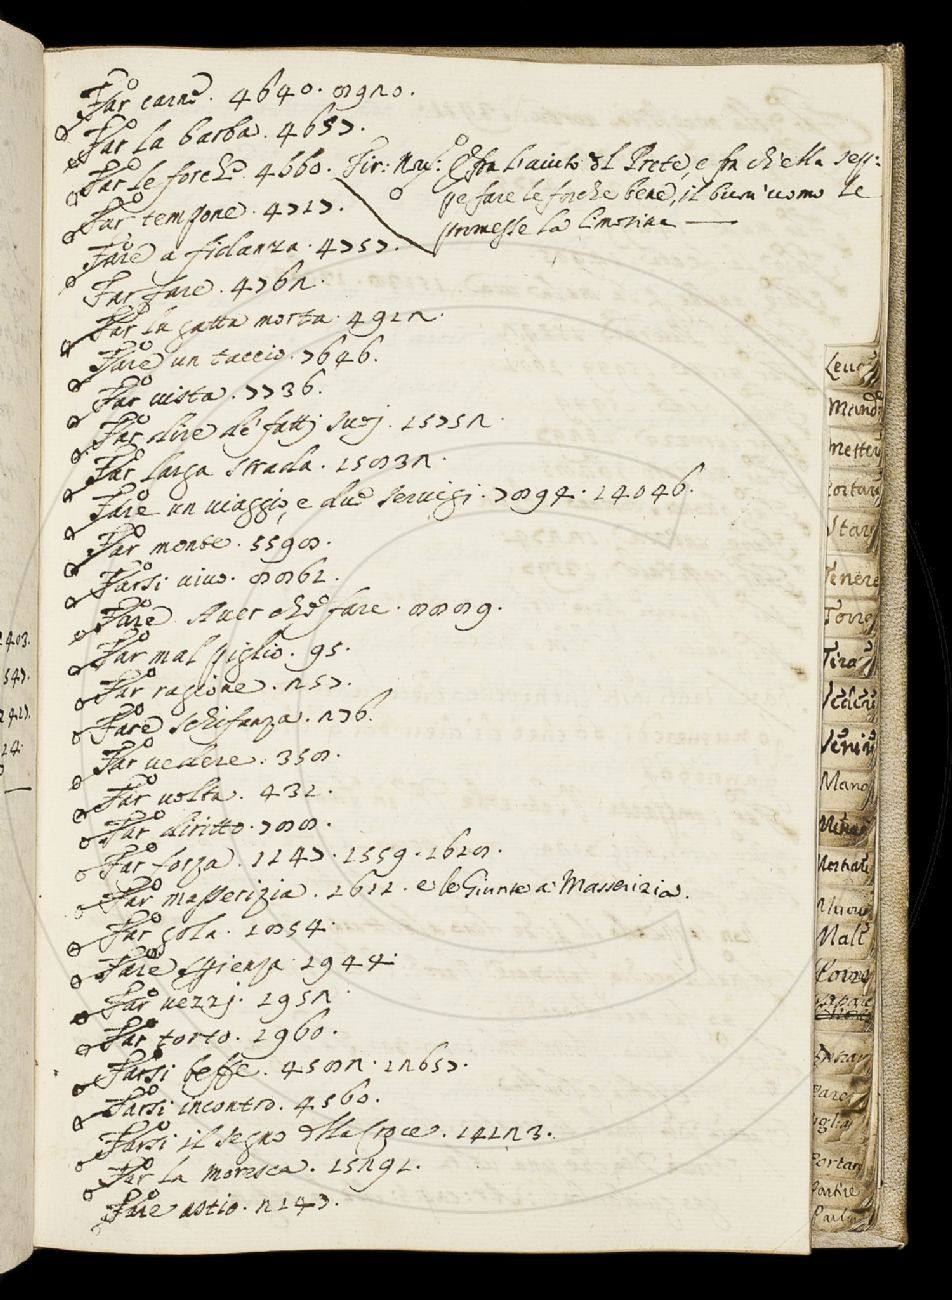 Far carne. 4640. 8920.
Far la barba. 4657.
Far le forche. 4660. Fir: Nov: E fra l'aiuto del Prete, e fu ch'ella sep:
pe fare le forche bene, il buon'uomo le
promesse la limosina
Far tempone. 4717.
Fare a fidanza. 4757.
Far fare. 4762.
Far la gatta morta. 4912.
Fare un taccio. 7646.
Far vista. 7736.
Far dire de' fatti suoj. 15752.
Far larga strada. 15832.
Fare un viaggio, e due servigi. 7894. 14046.
Far monte. 5598.
Farsi vivo. 8861.
Fare. Aver che fare. 8889.
Far mal piglio. 95.
Far ragione. 257.
Fare schifanza. 276.
Far vedere. 358.
Far volta. 432.
Far diritto. 788.
Far forza. 1147. 1559. 1618.
Far masserizia. 1611. e le Giunte a Masserizia.
Far gola. 1854.
Fare spienza. 1944.
Far vezzj. 1952.
Far torto. 1960.
Farsi beffe. 4582. 12657.
Farsi incontro. 4560.
Farsi il segno della Croce. 14123.
Far la moresca. 15291.
Fare astio. 2147.
403.
547.
Mano
Metter
Portar
Star
Tenere
Torre
Tirar
Vedere
Venire
Mano
Male
Portar
Partire